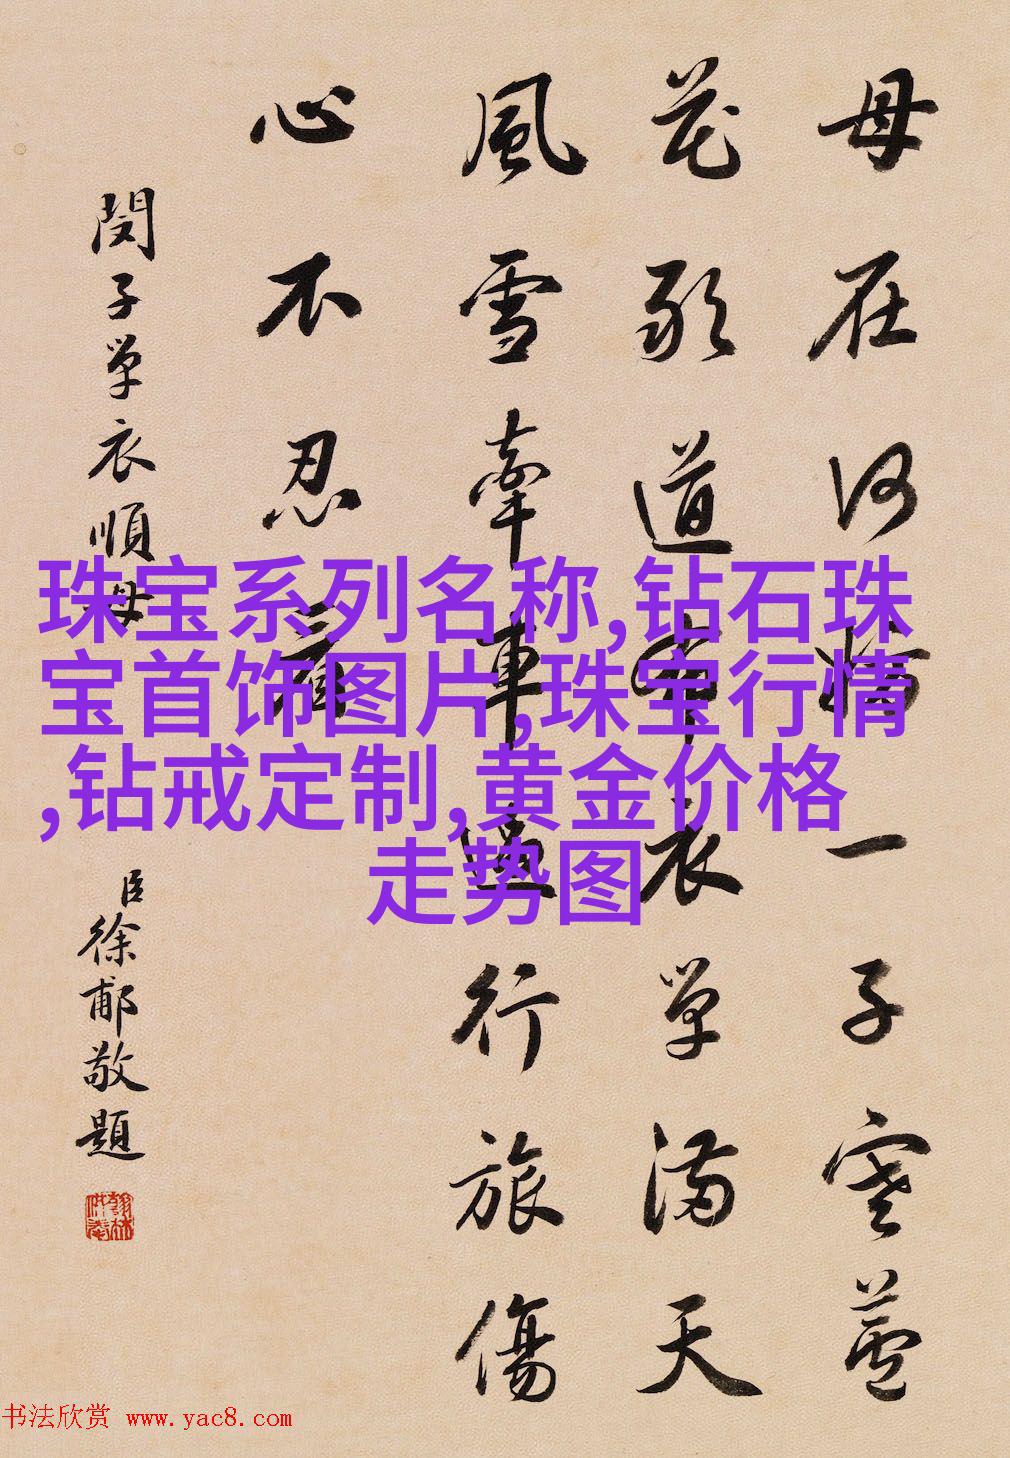 母在何一子寒蘆
花道衣單滿天
風雪牽車行旅傷
心不忍看
閔子單衣順母
臣徐郙敬題
珠宝系列名称,钻石珠
宝首饰图片,珠宝行情
,钻戒定制,黄金价格
走势图
书法欣赏 www.yac8.com